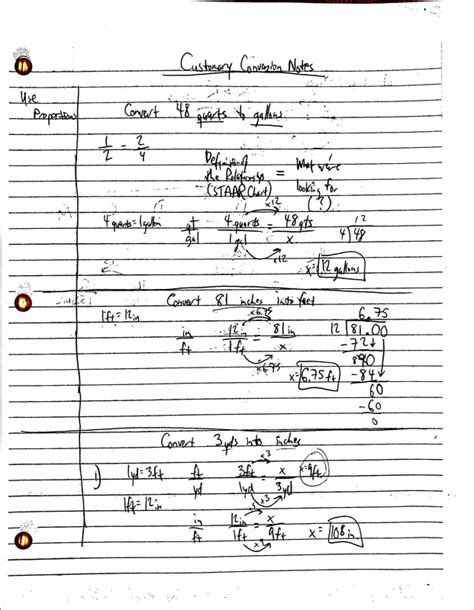 Customary Conversion Notes
Use
Proportions
Convert 48 quarts to gallons
1/2 = 2/4
Definition of
the Relationship
(STAAR Chart)
=
What we're
looking for
(?)
4 quarts = 1 gallon
qt/gal
4 quarts/1 gal = 48 qts/x
x12
x12
12
4 48
x = 12 gallons
Convert 81 inches into feet
1ft = 12in
in/ft
12in/1ft = 81in/x
x6.75
x6.75
x = 6.75ft
6.75
12 81.00
-72
890
-84
60
-60
0
Convert 3 yds into inches
1) 1yd = 3ft
ft/yd
3ft/1yd = x/3yd
x3
x3
x=9ft
1ft = 12in
in/ft
12in/1ft = x/9ft
x = 108in